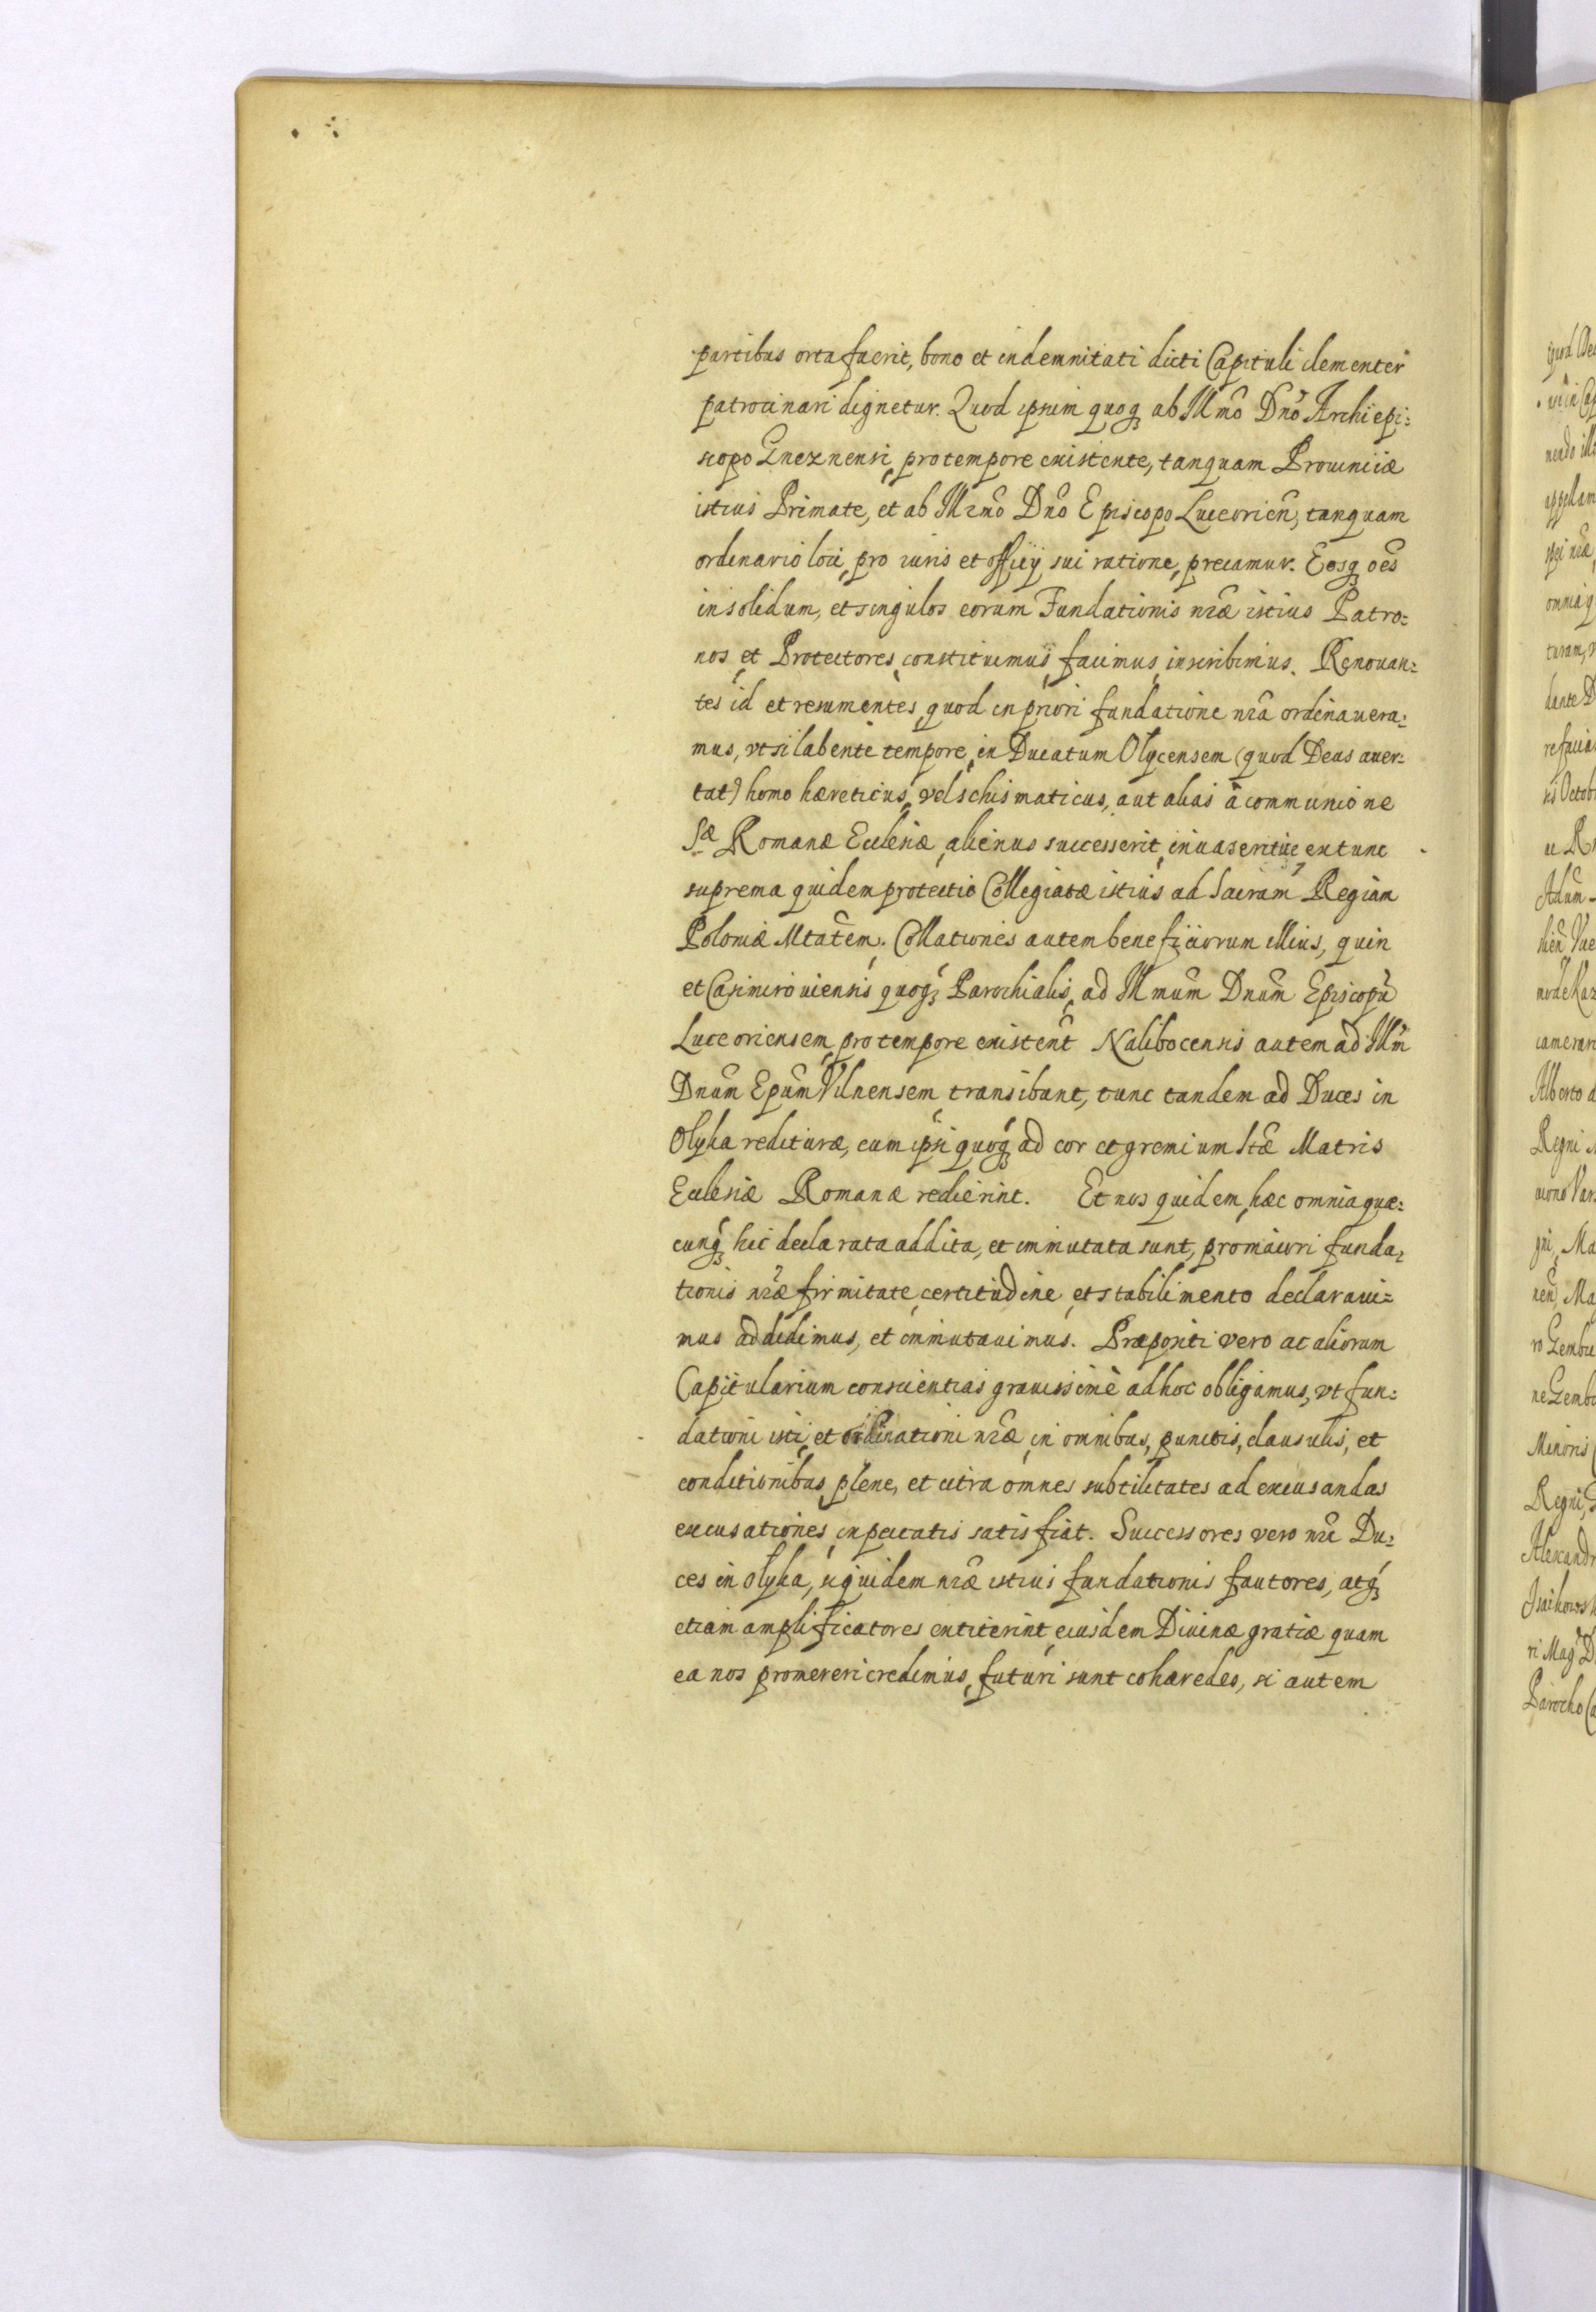 partibus orta fuerit, bono et indemnitati dicti Capituli clementer
patrocinari dignetur. Quod ipsum quoq₃ ab Illmo Dno Archiepi=
scopo Gneznensi, pro tempore existente, tanquam Prouinciæ
istius Primate, et ab Illmo Dno Episcopo Luceorien̄, tanquam
ordinario loci, pro iuris et officij sui ratione, precamur. Eosq₃ oēs
in solidum, et singulos eorum Fundationis nr̄æ istius Patro=
nos et Protectores, constituimus, facimus, inscribimus. Renouan=
tes id et resumentes, quod in priori fundatione nr̄a ordinauera=
mus, vt si labente tempore, in Ducatum Olycensem (quod Deus auer=
tat) homo hæreticus, vel schismaticus, aut alias à communione
Sæ Romanæ Ecclesiæ, alienus successerit, inuaseritue ex tunc
suprema quidem protectio Collegiatæ istius ad Sacram Regiam
Poloniæ Mtatem. Collationes autem beneficiorum illius, quin
et Casimirouiensis quoq₃ Parochialis, ad Illmum Dnum Episcopū
Luceoriensem, pro tempore existent̄ Nalibocensis autem ad Illm̄
Dnum Epum Vilnensem transibunt, tunc tandem ad Duces in
Olyka redituræ, cum ipsi quoq₃ ad cor et gremium Stæ Matris
Ecclesiæ Romanæ redierint. Et nos quidem, hæc omnia quæ=
cunq₃ hic declarata addita, et immutata sunt, pro maiori funda=
tionis nr̄æ firmitate, certitudine, et stabilimento declaraui=
mus addidimus, et immutauimus. Præpositi vero ac aliorum
Capitularium conscientias grauissimè ad hoc obligamus, vt fun=
dationi isti, et ordinationi nr̄æ, in omnibus, punctis, clausulis, et
conditionibus, plene, et citra omnes subtilitates ad excusandas
excusationes, in peccatis satisfiat. Successores vero nr̄i Du=
ces in Olyka, siquidem nr̄æ istius fundationis fautores, atq₃
etiam amplificatores extiterint, eiusdem Diuinæ gratiæ quam
ea nos promereri credimus, futuri sunt cohæredes, si autem